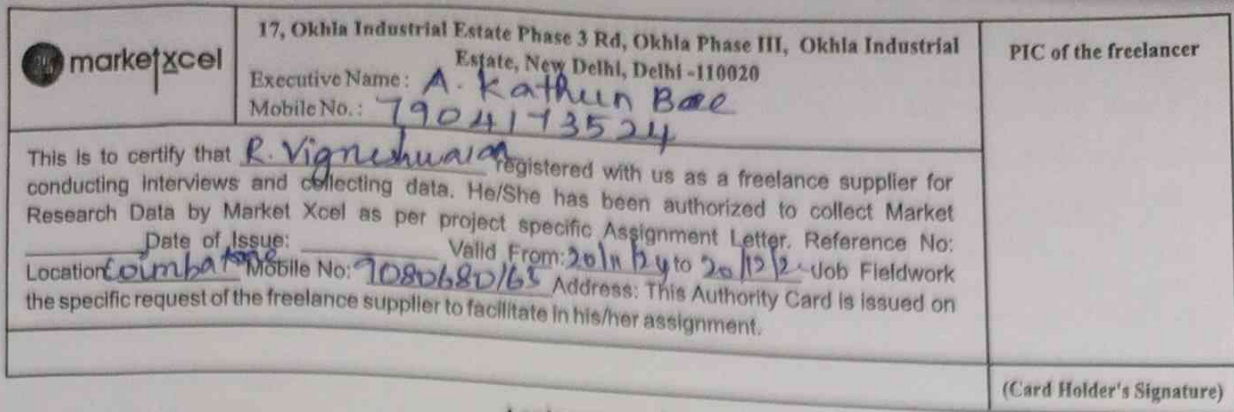 marketxcel
17, Okhla Industrial Estate Phase 3 Rd, Okhla Phase III, Okhla Industrial
Estate, New Delhi, Delhi -110020
Executive Name : A. Kathun Bee
Mobile No. : 7904173524
PIC of the freelancer
This is to certify that R. Vigneshwaran registered with us as a freelance supplier for
conducting interviews and collecting data. He/She has been authorized to collect Market
Research Data by Market Xcel as per project specific Assignment Letter. Reference No:
Date of Issue: Valid From: 20/11/24 to 20/12/2 Job Fieldwork
Location Coimbatore Mobile No: 9080680165 Address: This Authority Card is issued on
the specific request of the freelance supplier to facilitate in his/her assignment.
(Card Holder's Signature)